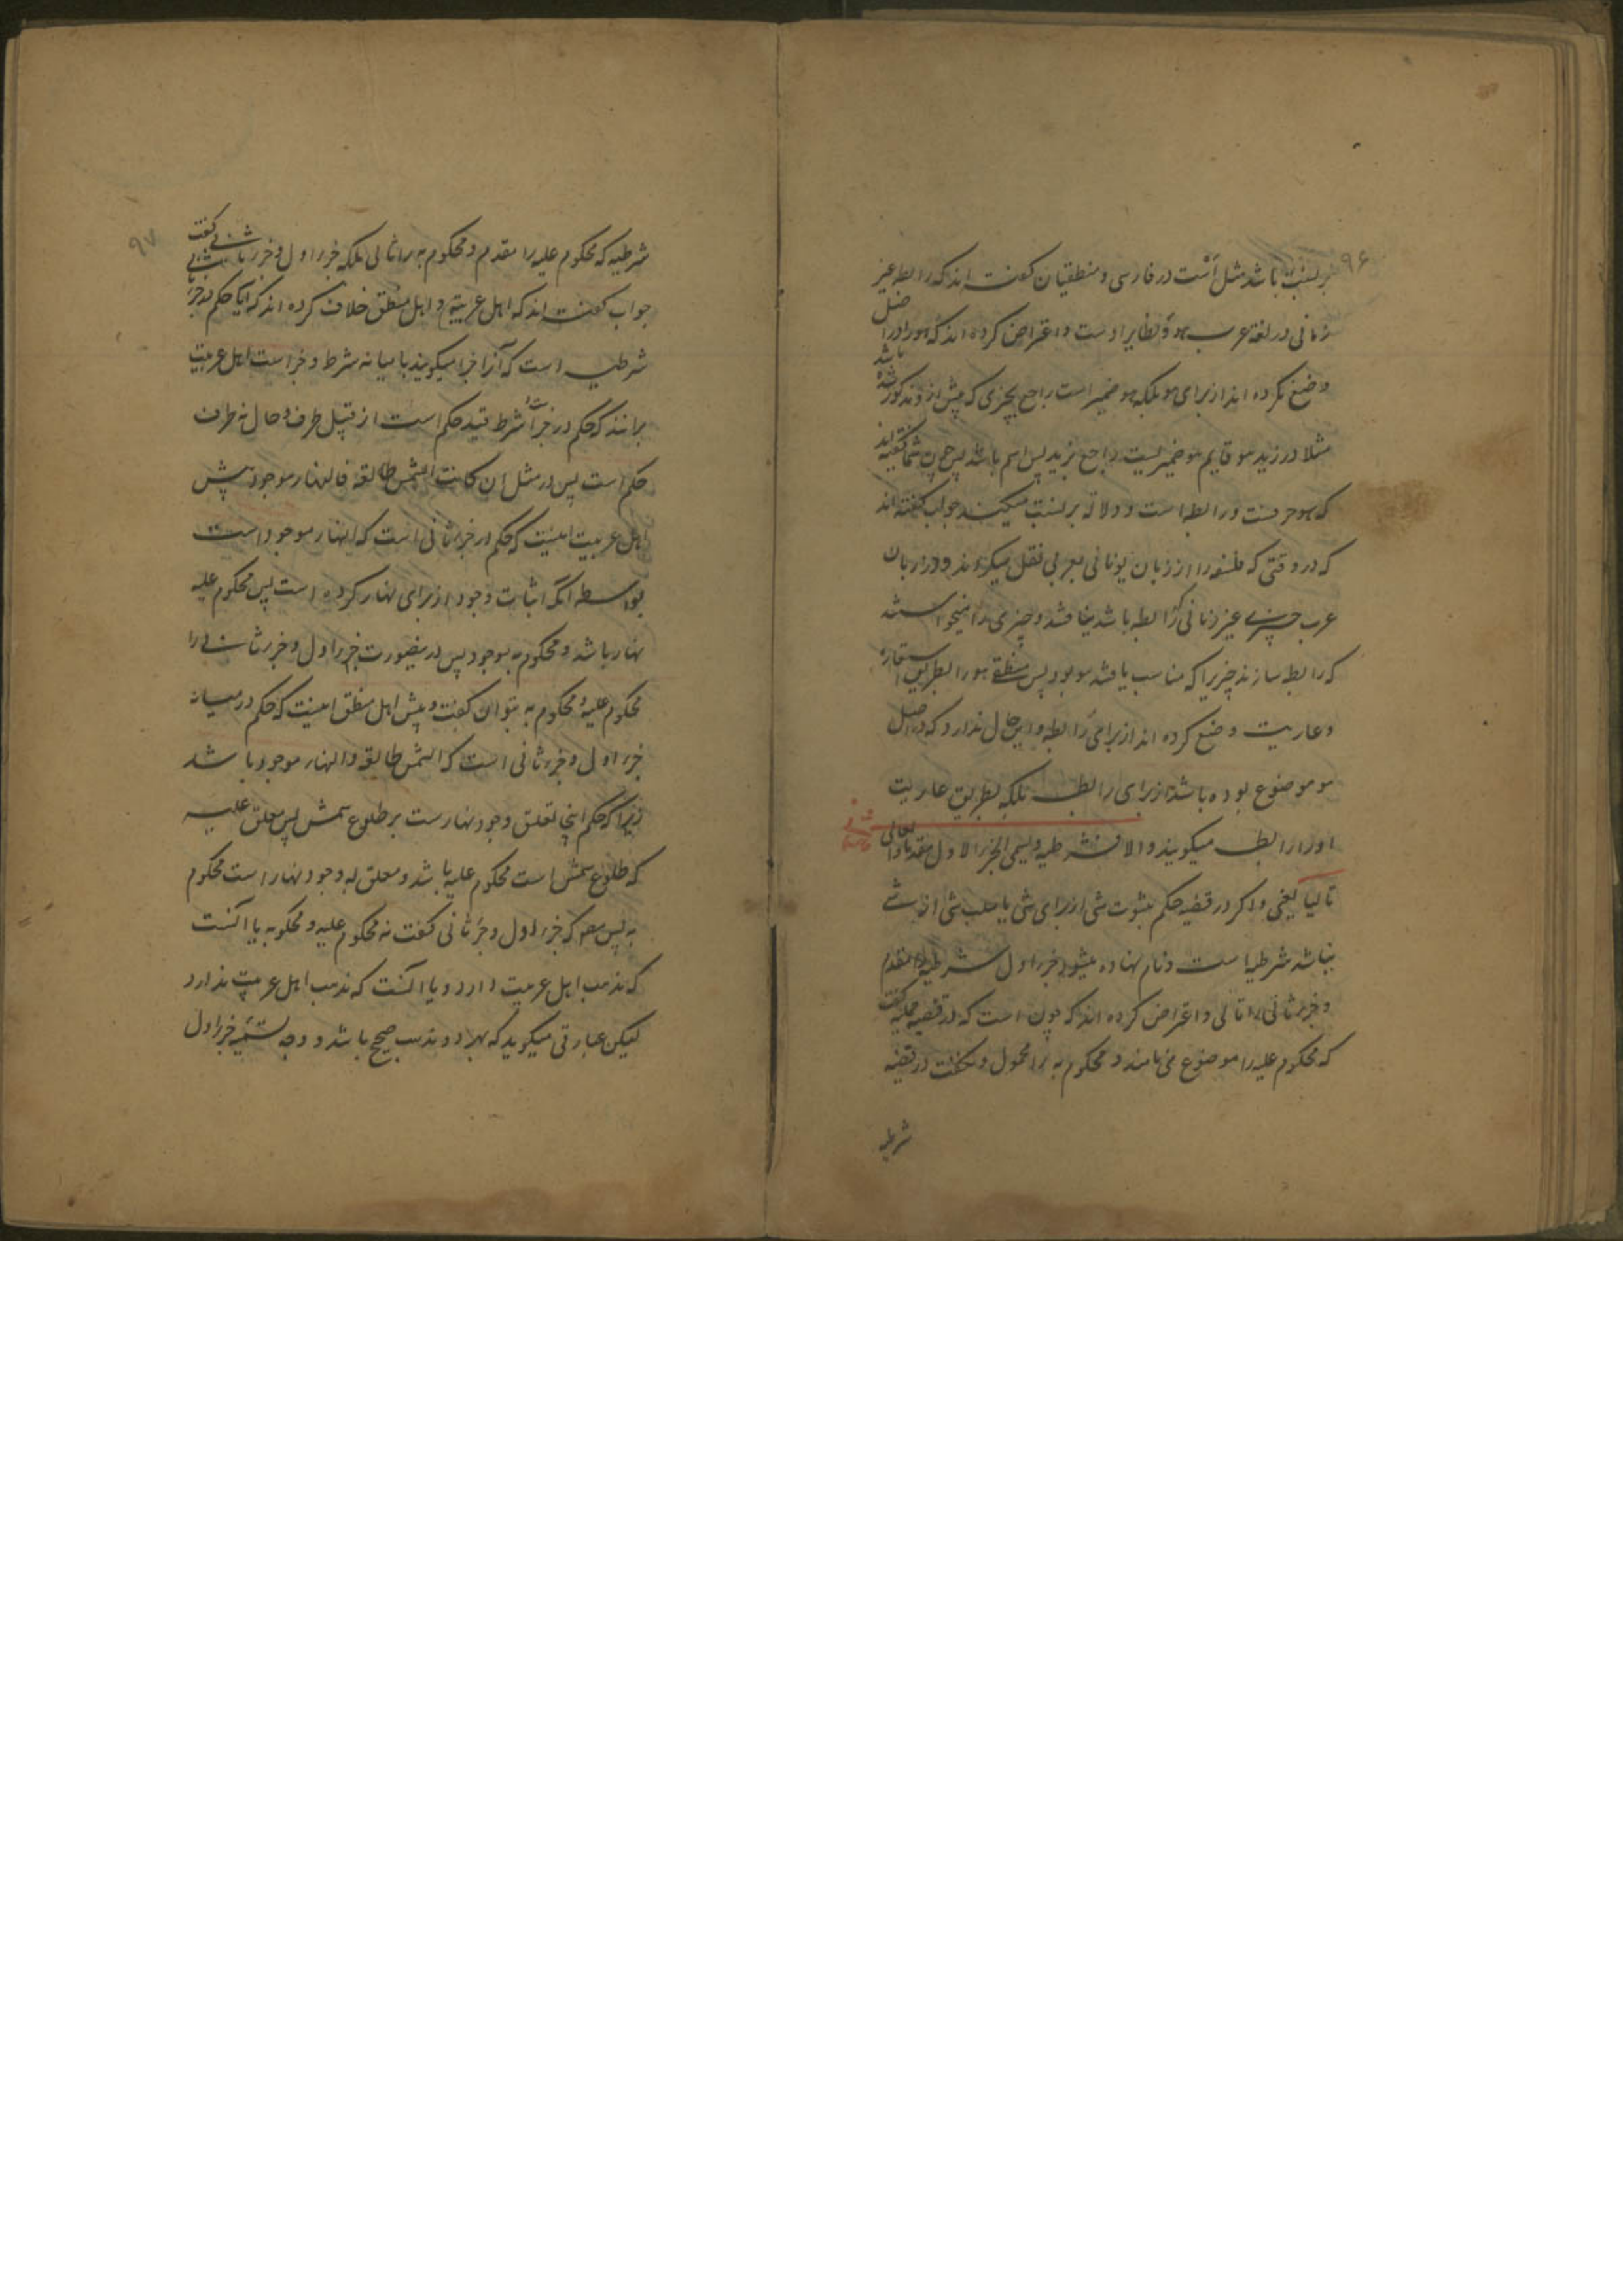 ۹۶
بر نسبت باشد مثل است در فارسی و منطقیان گفته اند که رابطه غیر
زمانی در لغة عرب هو و نظایر اوست و اعتراض کرده اند که هو را در اصل
وضع نکرده اند از برای هو بلکه هو ضمیر است راجع بچیزی که پیش ازو مذکور شده باشد
مثلا در زید هو قایم هو ضمیریست راجع بزید پس اسم باشد پس چون شما گفته اید
که هو حرفست و رابطه است و دلالة بر نسبت میکند جواب گفته اند
که در وقتی که فلسفه را از زبان یونانی بعربی نقل میکردند و در زبان
عرب چیزی غیر زمانی که رابطه باشد نیافتند و چیزی را میخواستند
که رابطه سازند چیزیرا که مناسب یافتند هو بود پس منطقی هو را بطریق استعاره
و عاریت وضع کرده اند از برای رابطه و این حال ندارد که در اصل
هو موضوع بوده باشد از برای رابطه بلکه بطریق عاریت
او را رابطه میگویند والا فشرطیه و یسمی الجزء الاول مقدما والثانی
تالیا یعنی و اگر در قضیه حکم بثبوت شی از برای شی یا سلب شی از شی
نباشد شرطیه است و نام نهاده میشود جزء اول شرطیه را مقدم
و جزء ثانی را تالی و اعتراض کرده اند که چون است که در قضیه حملیه گفت
که محکوم علیه را موضوع می نامند و محکوم به را محمول و نگفت در قضیه
شرطیه
۹۷
شرطیه که محکوم علیه را مقدم و محکوم به را تالی بلکه جزء اول و جزء ثانی گفت
جواب گفته اند که اهل عربیة و اهل منطق خلاف کرده اند که آیا حکم در جزء ثانی
شرطیه است که آنرا جزا میگویند یا میانه شرط و جزا است اهل عربیت
برانند که حکم در جزا است و شرط قید حکم است از قبیل ظرف و حال نه طرف
حکم است پس در مثل ان کانت الشمس طالعة فالنهار موجود پیش
اهل عربیت اینست که حکم در جزء ثانی است که النهار موجود است
بواسطه آنکه اثبات وجود از برای نهار کرده است پس محکوم علیه
نهار باشد و محکوم به موجود پس درینصورت جزء اول و جزء ثانی را
محکوم علیه و محکوم به نتوان گفت و پیش اهل منطق اینست که حکم در میانه
جزء اول و جزء ثانی است که الشمس طالعة و النهار موجود باشد
زیرا که حکم اینجا تعلق وجود نهارست بر طلوع شمس پس معلق علیه
که طلوع شمس است محکوم علیه باشد و معلق به وجود نهار است محکوم
به پس مص که جزء اول و جزء ثانی گفت نه محکوم علیه و محکوم به یا آنست
که مذهب اهل عربیت دارد و یا آنست که مذهب اهل عربیت ندارد
لیکن عبارتی میگوید که بهر دو مذهب صحیح باشد و وجه تسمیه جزء اول